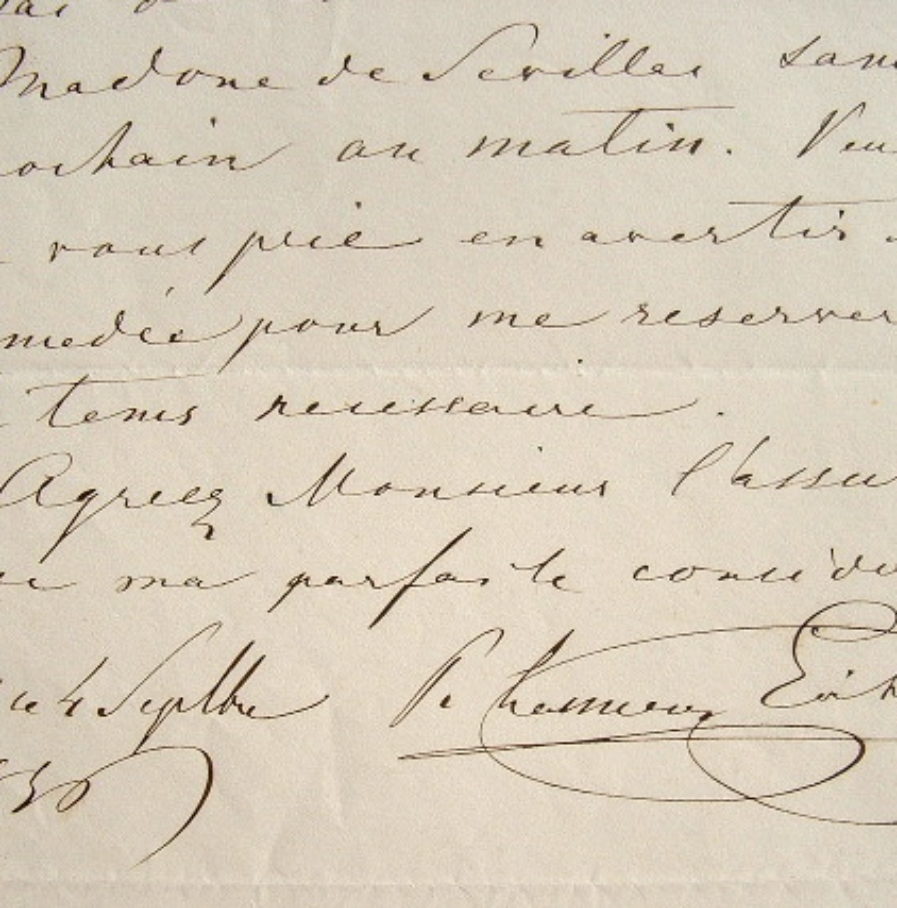 Madone de Sevilles sam
ochain au matin. Veu
vous prie en avertir
medée pour me reserver
tems necessaire.
Agreez Monsieur l'assu
ma parfaite consider
le 4 Septbre